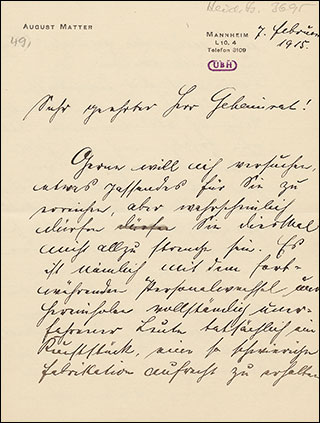 AUGUST MATTER
49,
Heid. Hs. 3695
MANNHEIM
L 10. 4
Telefon 3109
7. Februar
1915.
UBH
Sehr geehrter Herr Geheimrat!
Gerne will ich versuchen,
etwas passendes für Sie zu
erreichen, aber wahrscheinlich
dürfen dürfen Sie diesmal
nicht allzu strenge sein. Es
ist nämlich mit dem fort-
währenden Personalwechsel und
vollständig uner-
fahrener Leute tatsächlich ein
Kunststück, eine so schwierige
Fabrikation aufrecht zu erhalten